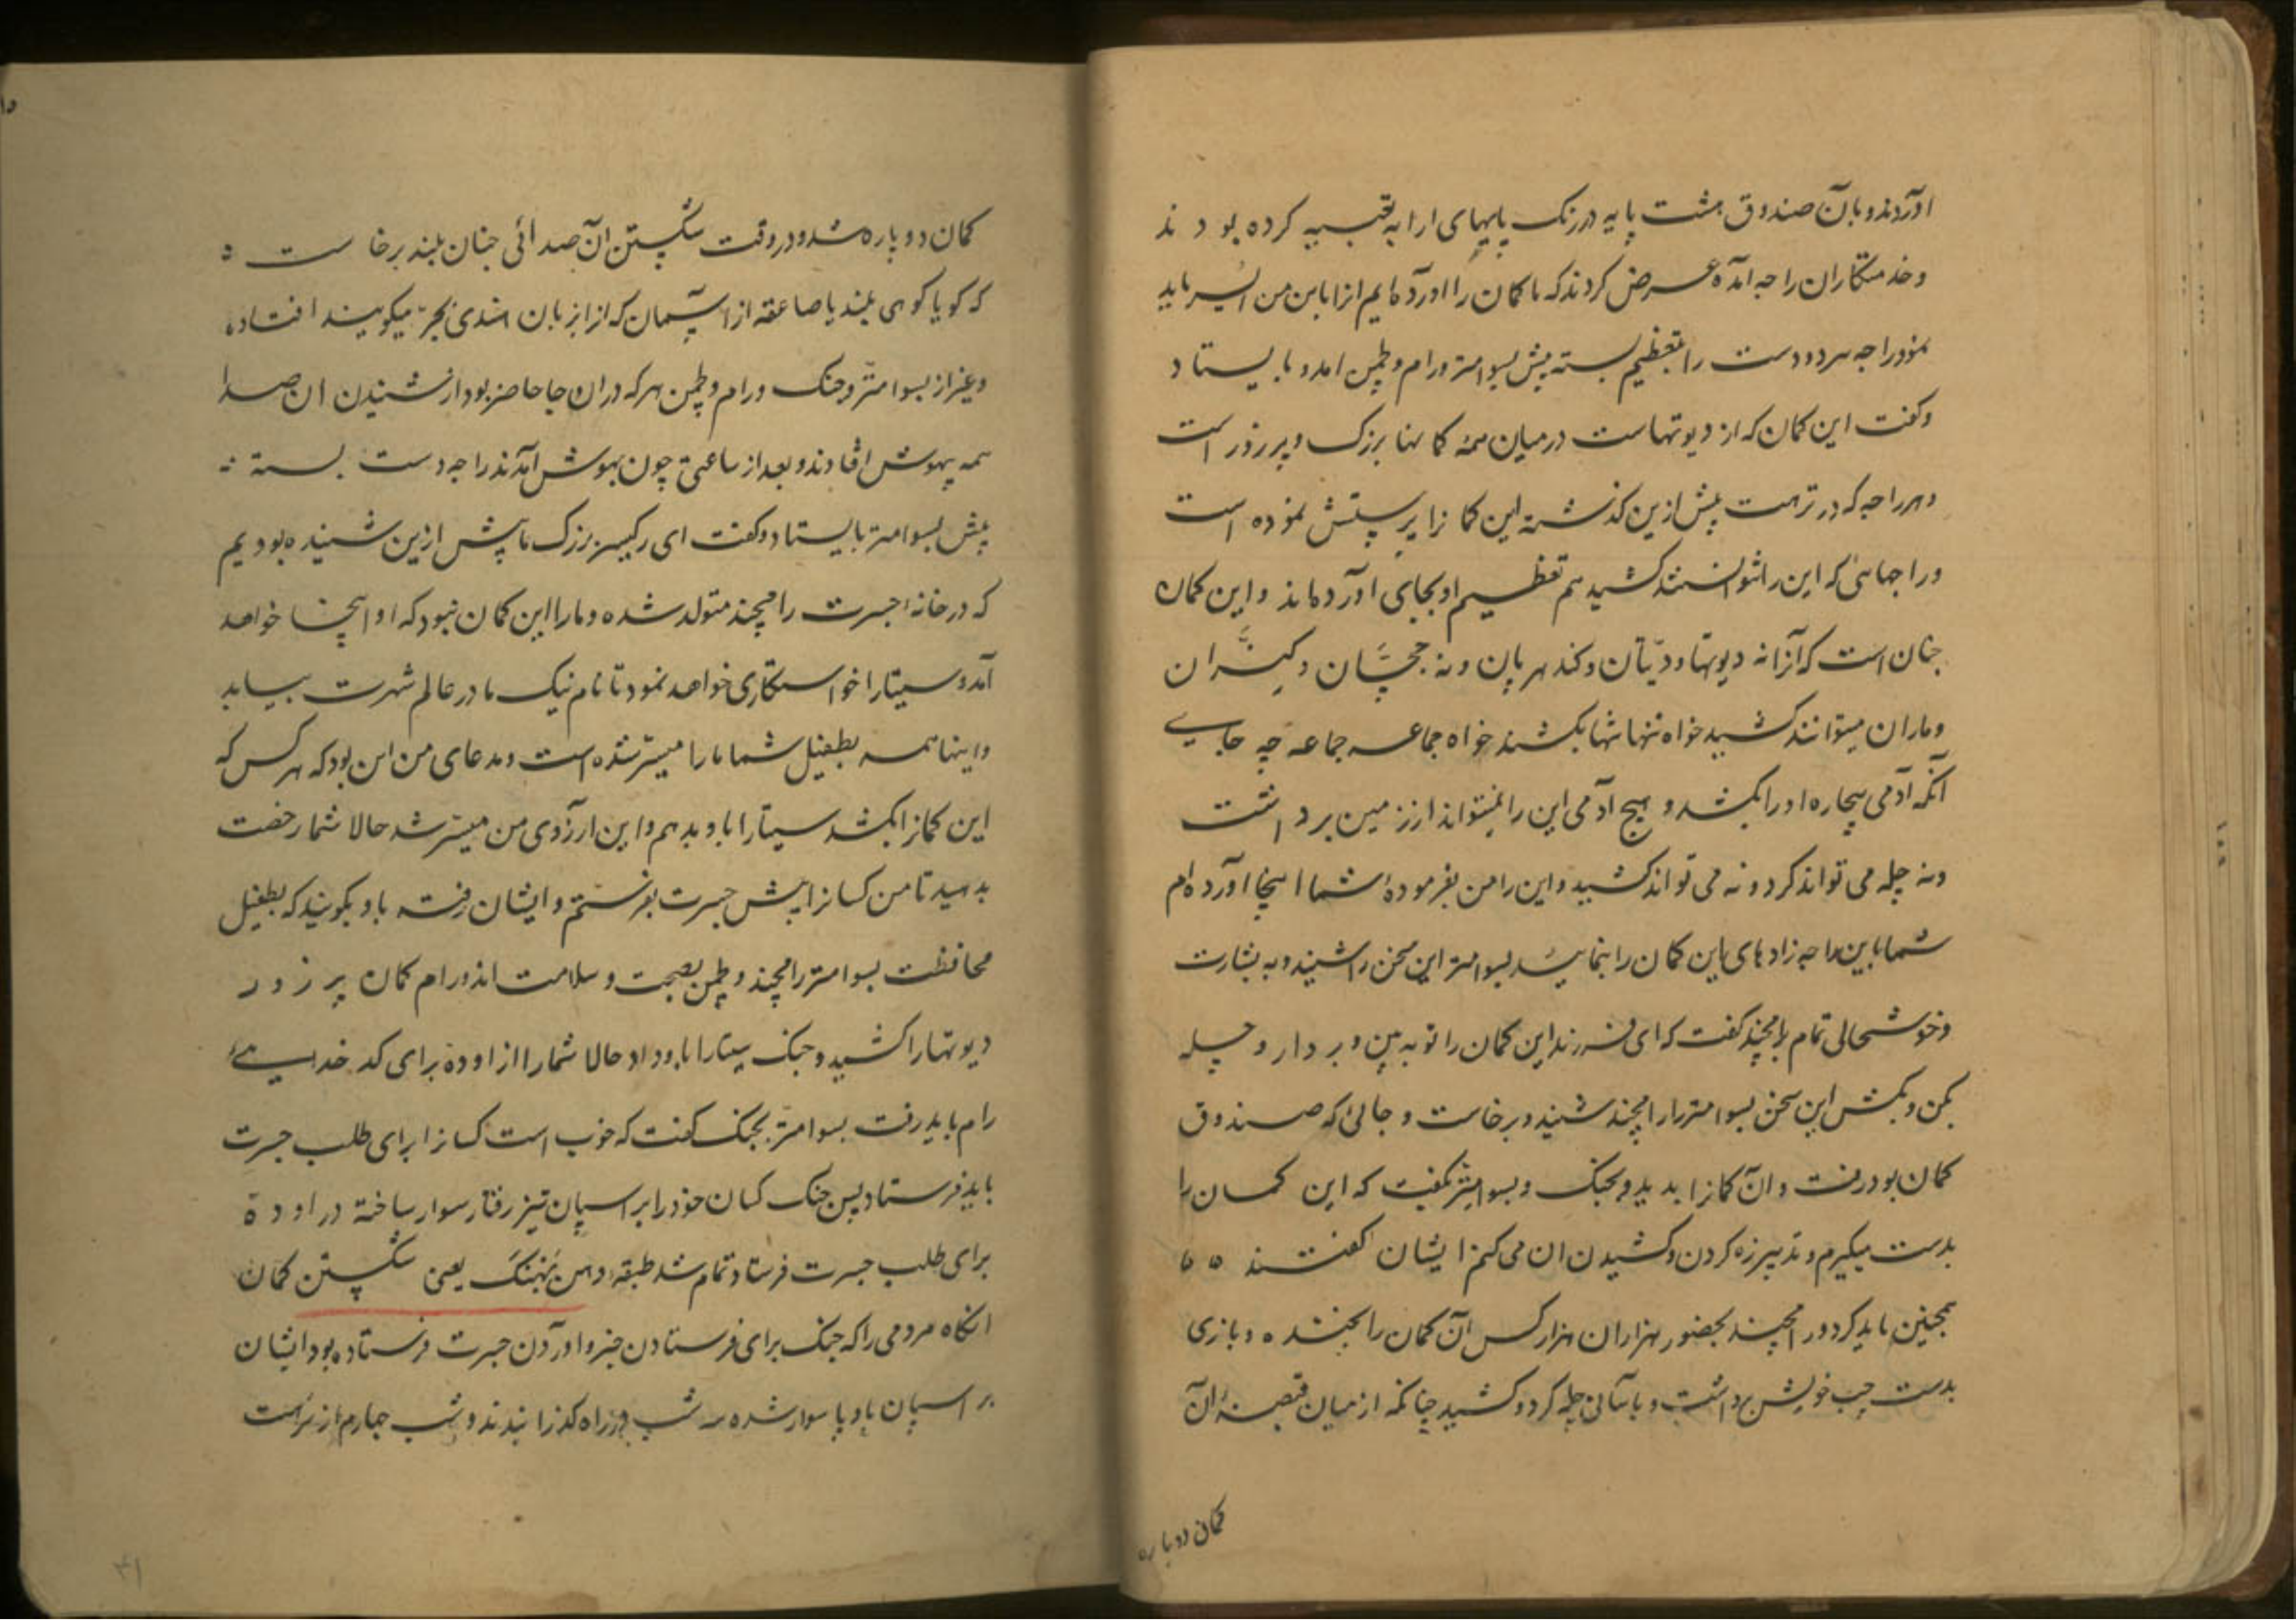 اوردند و بآن صندوق هشت پایه در رنک پایهای ارابه تعبیه کرده بودند
و خدمتکاران راجه آمده عرض کردند که ما کمان را آورده ایم ازابا این من
نمود راجه هر دو دست را بتعظیم بسته پیش بسوامتر و رام و لچمن امد و بایستاد
و کفت این کمان که از دیوتهاست در میان همه کمانها بزرک و پر زور است
و هر راجه که در ترهت پیش ازین کذشته این کمانرا پرستش نموده است
و راجهائی که این را نتوانستند کشید هم تعظیم او بجای آورده اند و این کمان
چنان است که آنرا نه دیوتها و دیتان و کندهربان و نه جچهان و کنران
و ماران میتوانند کشید خواه تنها تنها بکشند خواه جماعه جماعه چه جای
آنکه آدمی بیچاره او را بکشد و هیچ آدمی این را نمیتواند از زمین برداشت
و نه چله می تواند کرد و نه می تواند کشید و این را من بفرموده شما اینجا آورده ام
شما باین راجه زادهای این کمان را بنمایید بسوامتر این سخن را شنید و به بشارت
و خوشحالی تمام برامچند کفت که ای فرزند این کمان را تو به بین و بردار و چله
بکن و بکش این سخن بسوامتر را رامچند شنید و برخاست و جائی که صندوق
کمان بود رفت و آن کمانرا بدید و بجنک و بسوامتر بکفت که این کمان را
بدست میکیرم و تدبیر زه کردن و کشیدن ان می کنم ایشان کفتند ه ه
همچنین باید کرد و رامچند بحضور هزاران هزار کس آن کمان را بخنده و بازی
بدست چپ خویش برداشت و باسانی چله کرد و کشید چنانکه از میان قبضه آن
کمان دوباره
کمان دو پاره شد و در وقت شکستن آن صدائی چنان بلند برخاست ه
که کویا کوهی بلند یا صاعقه از آسمان که ازا بزبان هندی بجر میکویند افتاده
و غیر از بسوامتر و جنک و رام و لچمن هر که دران جا حاضر بود از شنیدن ان صدا
همه بیهوش افتادند و بعد از ساعتی چون بهوش آمدند راجه دست بسته
پیش بسوامتر بایستاد و کفت ای رکیسر بزرک ما پیش ازین شنیده بودیم
که در خانه اجسرت رامچند متولد شده و ما را این کمان نبود که او اینجا خواهد
آمد و سیتا را خواستکاری خواهد نمود تا نام نیک ما در عالم شهرت بیابد
و اینها همه بطفیل شما ما را میسر شده است و مدعای من این بود که هر کس که
این کمانرا بکشد سیتا را باو بدهم و این آرزوی من میسر شد حالا شما رخصت
بدهید تا من کسانرا پیش جسرت بفرستم و ایشان رفته باو بکویند که بطفیل
محافظت بسوامتر رامچند و لچمن بصحت و سلامت اند و رام کمان پر زور
دیوتها را کشید و جنک سیتا را باو داد حالا شما را از اوده برای کدخدایی
رام باید رفت بسوامتر بجنک کفت که خوب است کسانرا برای طلب جسرت
باید فرستاد پس جنک کسان خود را بر اسپان تیز رفتار سوار ساخته در اوده
برای طلب جسرت فرستاد تمام شد طبقه دهن بهنک یعنی شکستن کمان
انکاه مردمی را که جنک برای فرستادن خبر و آوردن جسرت فرستاده بود ایشان
بر اسپان باد پا سوار شده سه شب در راه کذرانیدند و شب چهارم از ترهت
۴۱